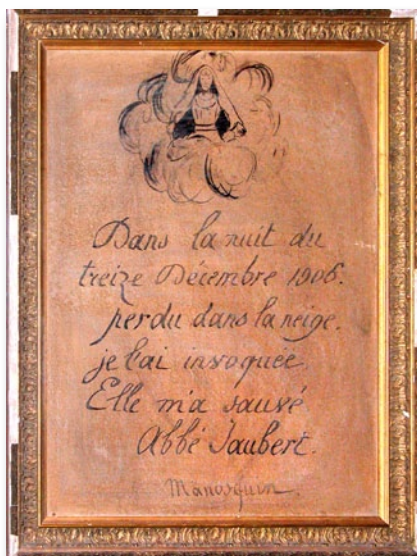 Dans la nuit du
treize Décembre 1906.
perdu dans la neige.
je l'ai invoquée
Elle m'a sauvé
Abbé Jaubert.